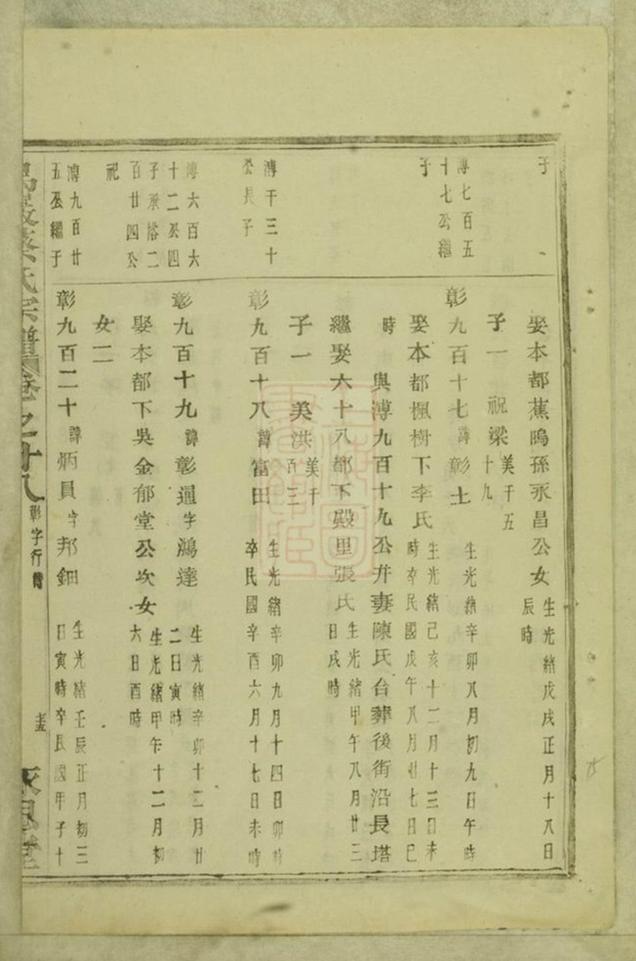 子
娶本都蕉鳴孫永昌公女 生光緒戊戌正月十八日辰時
子一 祝梁 美千五十九
溥七百五十七公繼子
彰九百十七 諱彰土 生光緒辛卯八月初九日午時
娶本都楓樹下李氏 生光緒己亥十二月十三日未時卒民國戊午八月廿七日巳時
與溥九百十九公幷妻陳氏合葬後街沿長塔
繼娶六十八都下殿里張氏 生光緒甲午八月廿三日戌時
子一 美洪 美千百三
溥千三十公長子
彰九百十八 諱富田 生光緒辛卯九月十四日卯時卒民國辛酉六月十七日未時
溥六百六十二公四子承嗒二百廿四公祀
彰九百十九 諱彰通字鴻達 生光緒辛卯十二月廿二日寅時
娶本都下吳金郁堂公次女 生光緒甲午十二月初六日酉時
女二
溥九百廿五公繼子
彰九百二十 諱炳員字邦鈿 生光緒壬辰正月初三日寅時卒民國甲子十
氏宗譜 卷之廿八 彰字行